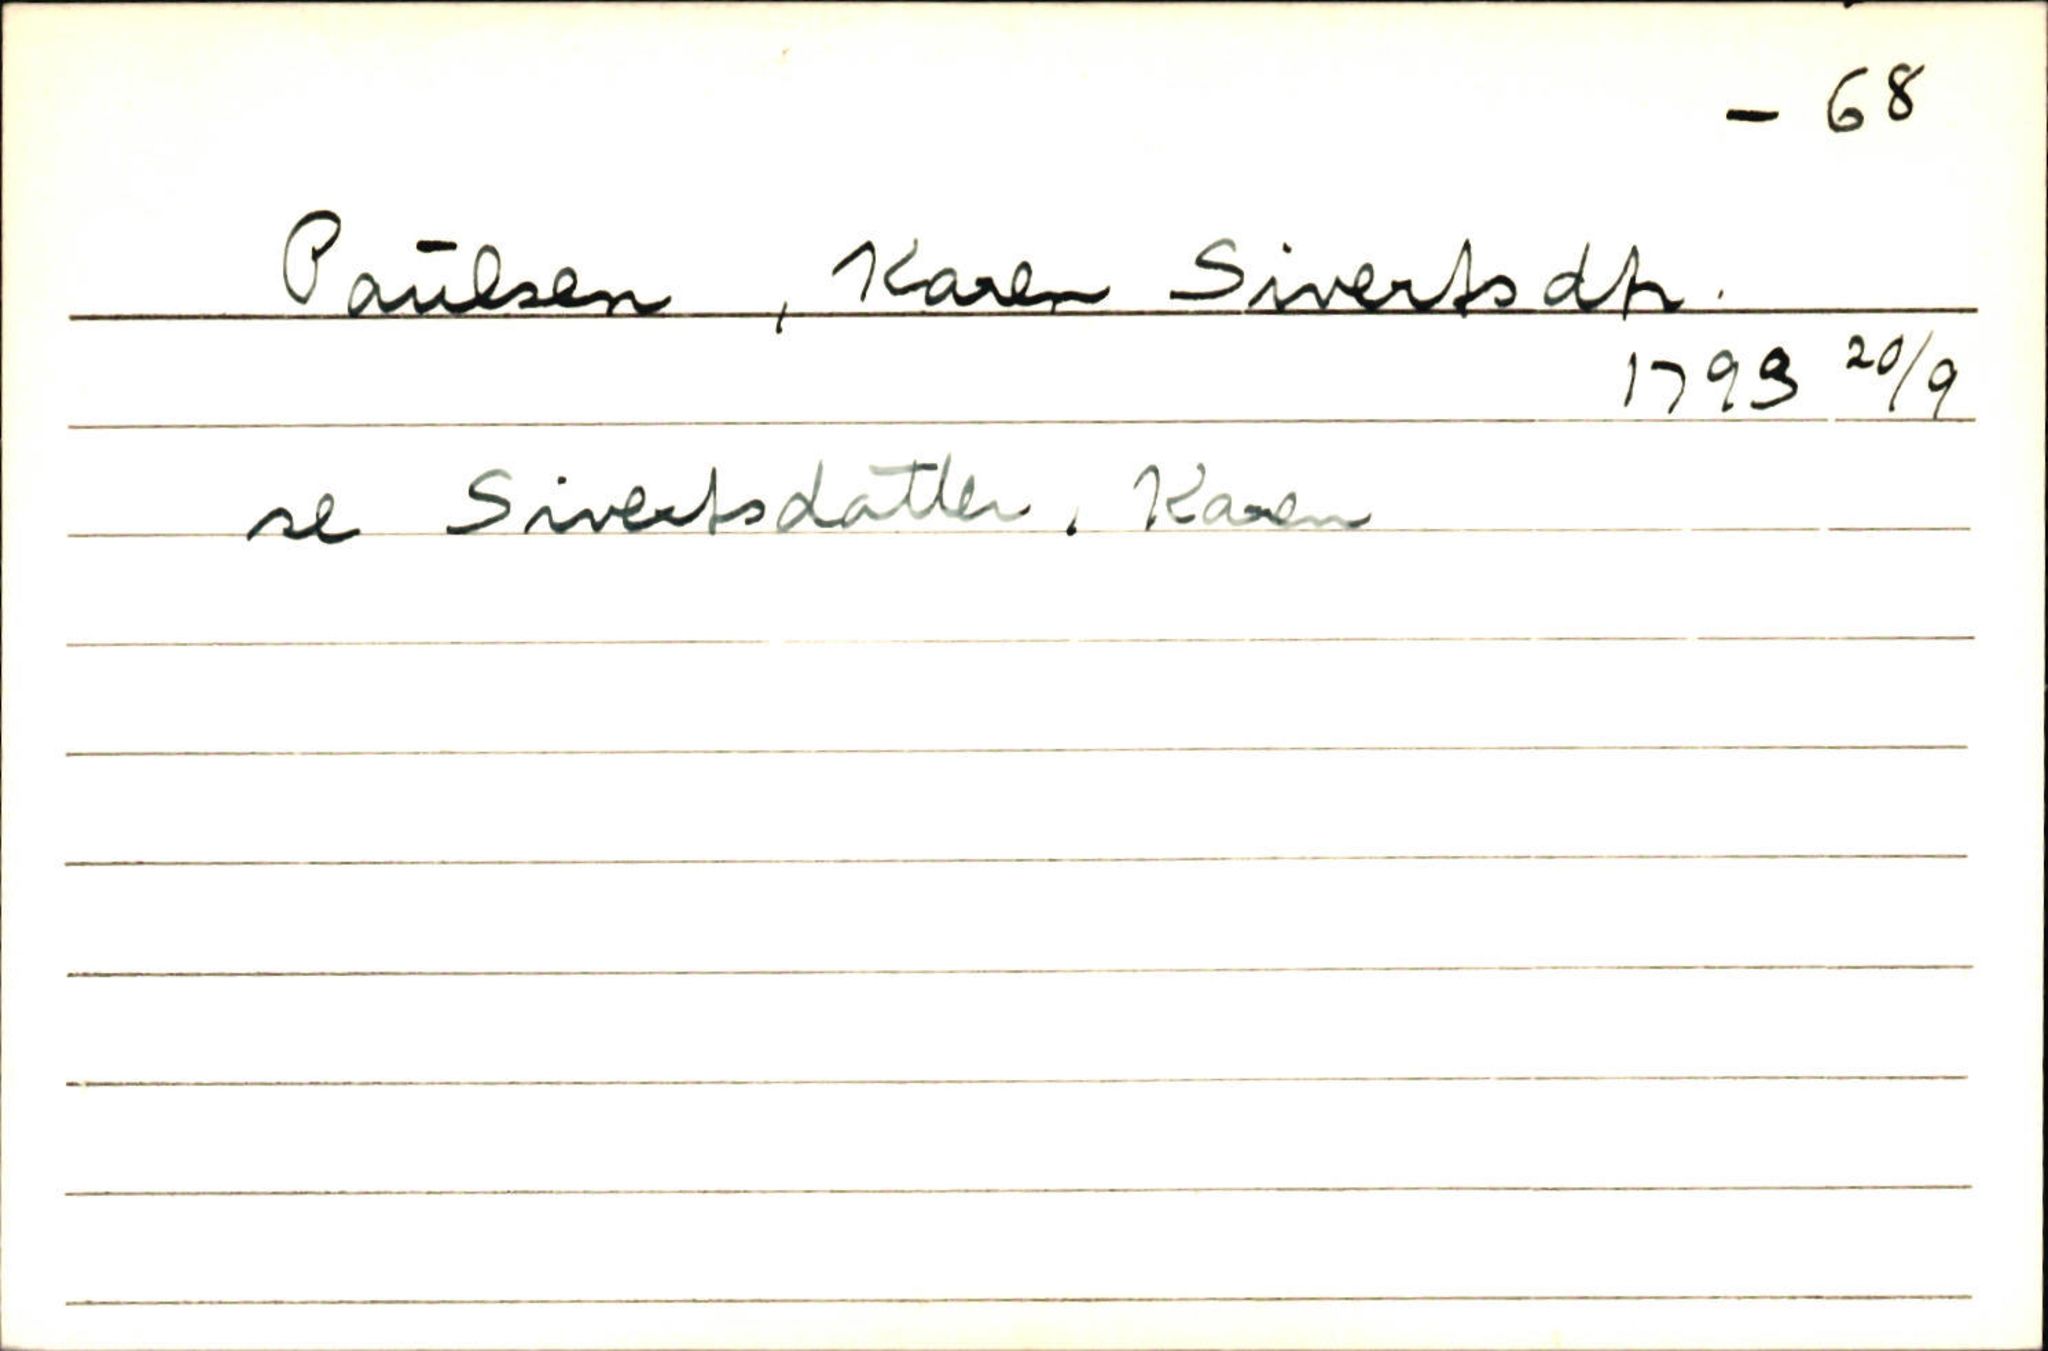 - 68
Paulsen, Karen Sivertsdtr.
1793 20/9
se Sivertsdatter, Karen